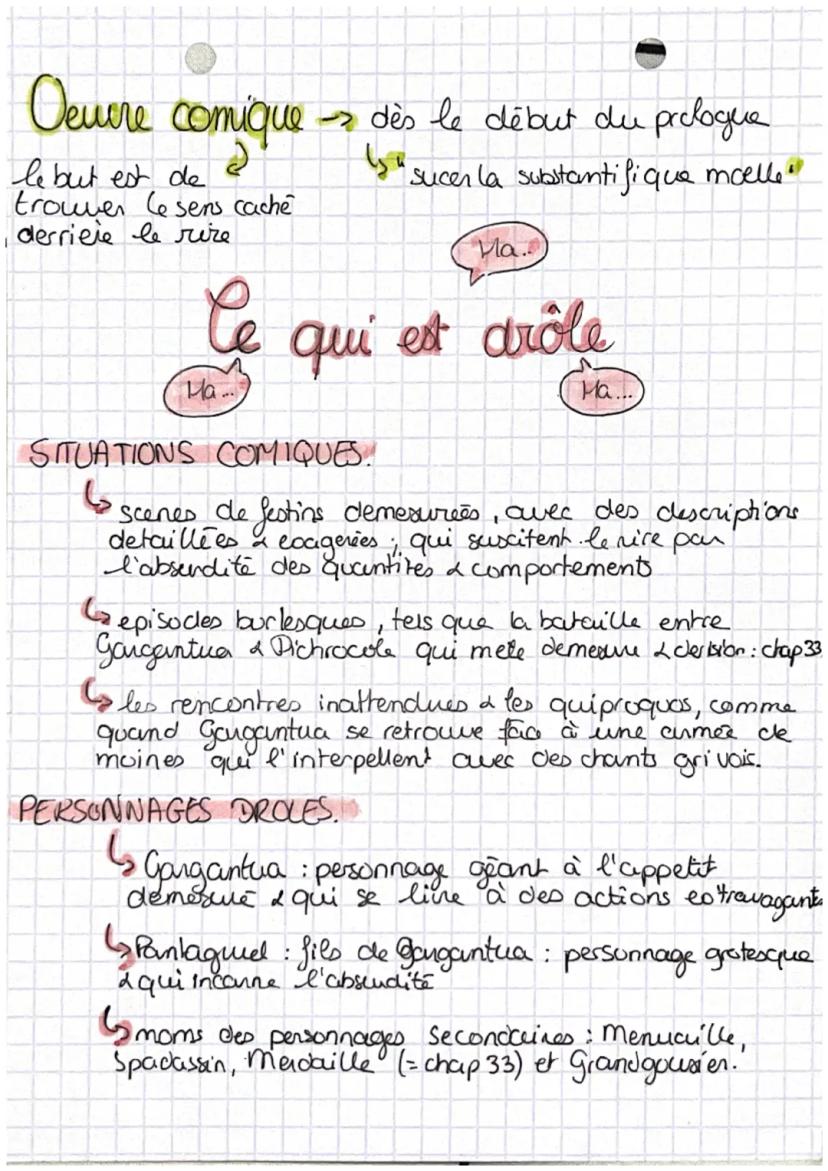 Oeuvre comique -> dès le début du prologue
le but est de
trouver le sens caché
derrière le rire
↳ "sucer la substantifique moelle"
Ha..
Ce qui est drôle
Ha...
Ha...
SITUATIONS COMIQUES.
↳ scenes de festins demesureés, avec des descriptions
detaillées & exagerées ; qui suscitent le rire par
l'absurdité des quantites & comportements
↳ episodes burlesques, tels que la bataille entre
Gargantua & Pichrocole qui mele demesure & derision : chap 33
↳ les rencontres inattendues & les quiproquos, comme
quand Gargantua se retrouve face à une armée de
moines qui l'interpellent avec des chants grivois.
PERSONNAGES DROLES.
↳ Gargantua : personnage géant à l'appetit
démesuré & qui se livre à des actions extravagant
↳ Pantagruel : fils de Gargantua : personnage grotesque
& qui incarne l'absurdité
↳ noms des personnages secondaires : Menuaille,
Spadassin, Merdaille (= chap 33) et Grandgousier.